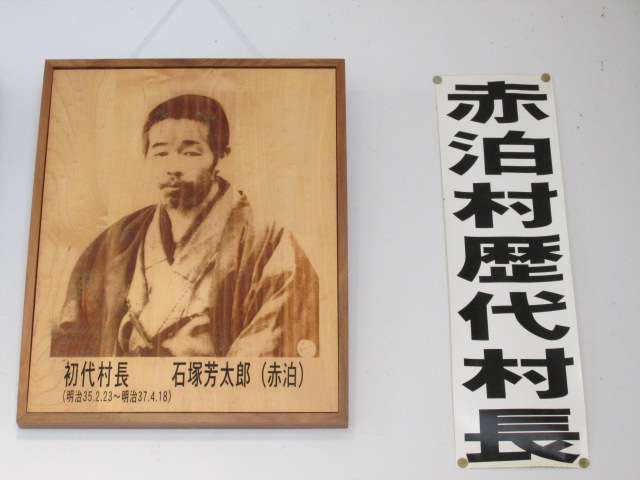 赤泊村歴代村長
初代村長　石塚芳太郎（赤泊）
(明治35.2.23～明治37.4.18)